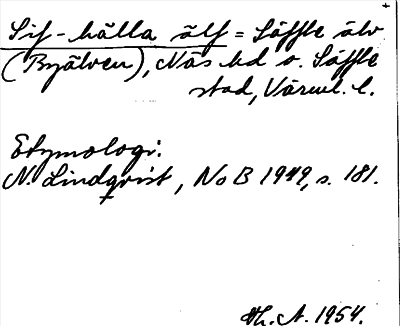 Sif-hälla älf = Säffle älv
(Byälven), Näs hd o. Säffle
stad, Värml. l.
Etymologi.
N. Lindqvist, NoB 1949, s. 181.
Th. A. 1954.